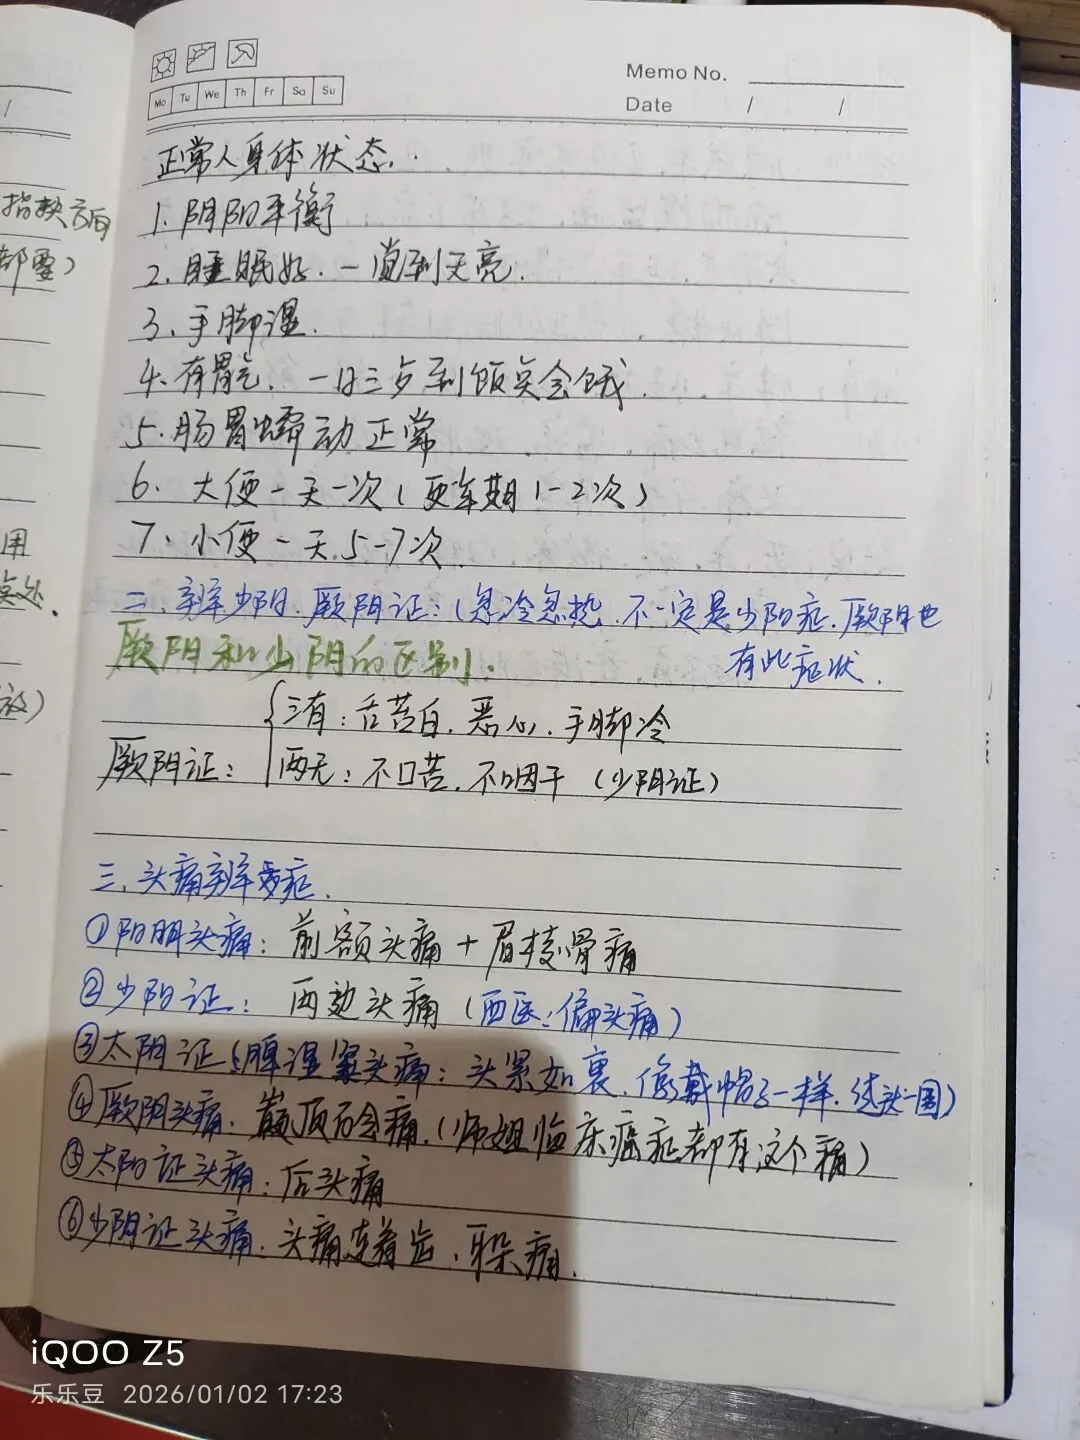 Memo No.
Date / /
Mo Tu We Th Fr Sa Su
正常人身体状态.
1. 阴阳平衡
2. 睡眠好. 一觉到天亮.
3. 手脚温.
4. 有胃气. 一日三歺到饭点会饿.
5. 肠胃蠕动正常
6. 大便一天一次(更年期1-2次)
7. 小便一天5-7次
二. 辨少阳. 厥阴证:(忽冷忽热. 不一定是少阳症. 厥阴也
有此症状.
厥阴和少阴的区别.
三有: 舌苔白. 恶心. 手脚冷
厥阴证:
两无: 不口苦. 不咽干 (少阴证)
三. 头痛辨症.
①阳明头痛: 前额头痛+眉棱骨痛
②少阳证: 两边头痛(西医: 偏头痛)
③太阴证 湿家头痛: 头紧如裹. 像戴帽子一样. 绕头一圈)
④厥阴头痛. 巅顶百会痛.(师姐临床癌症都有这个痛)
⑤太阳证头痛: 后头痛
⑥少阴证头痛. 头痛连着齿. 耳朵痛.
指
方向
都要)
用
处.
iQOO Z5
乐乐豆 2026/01/02 17:23